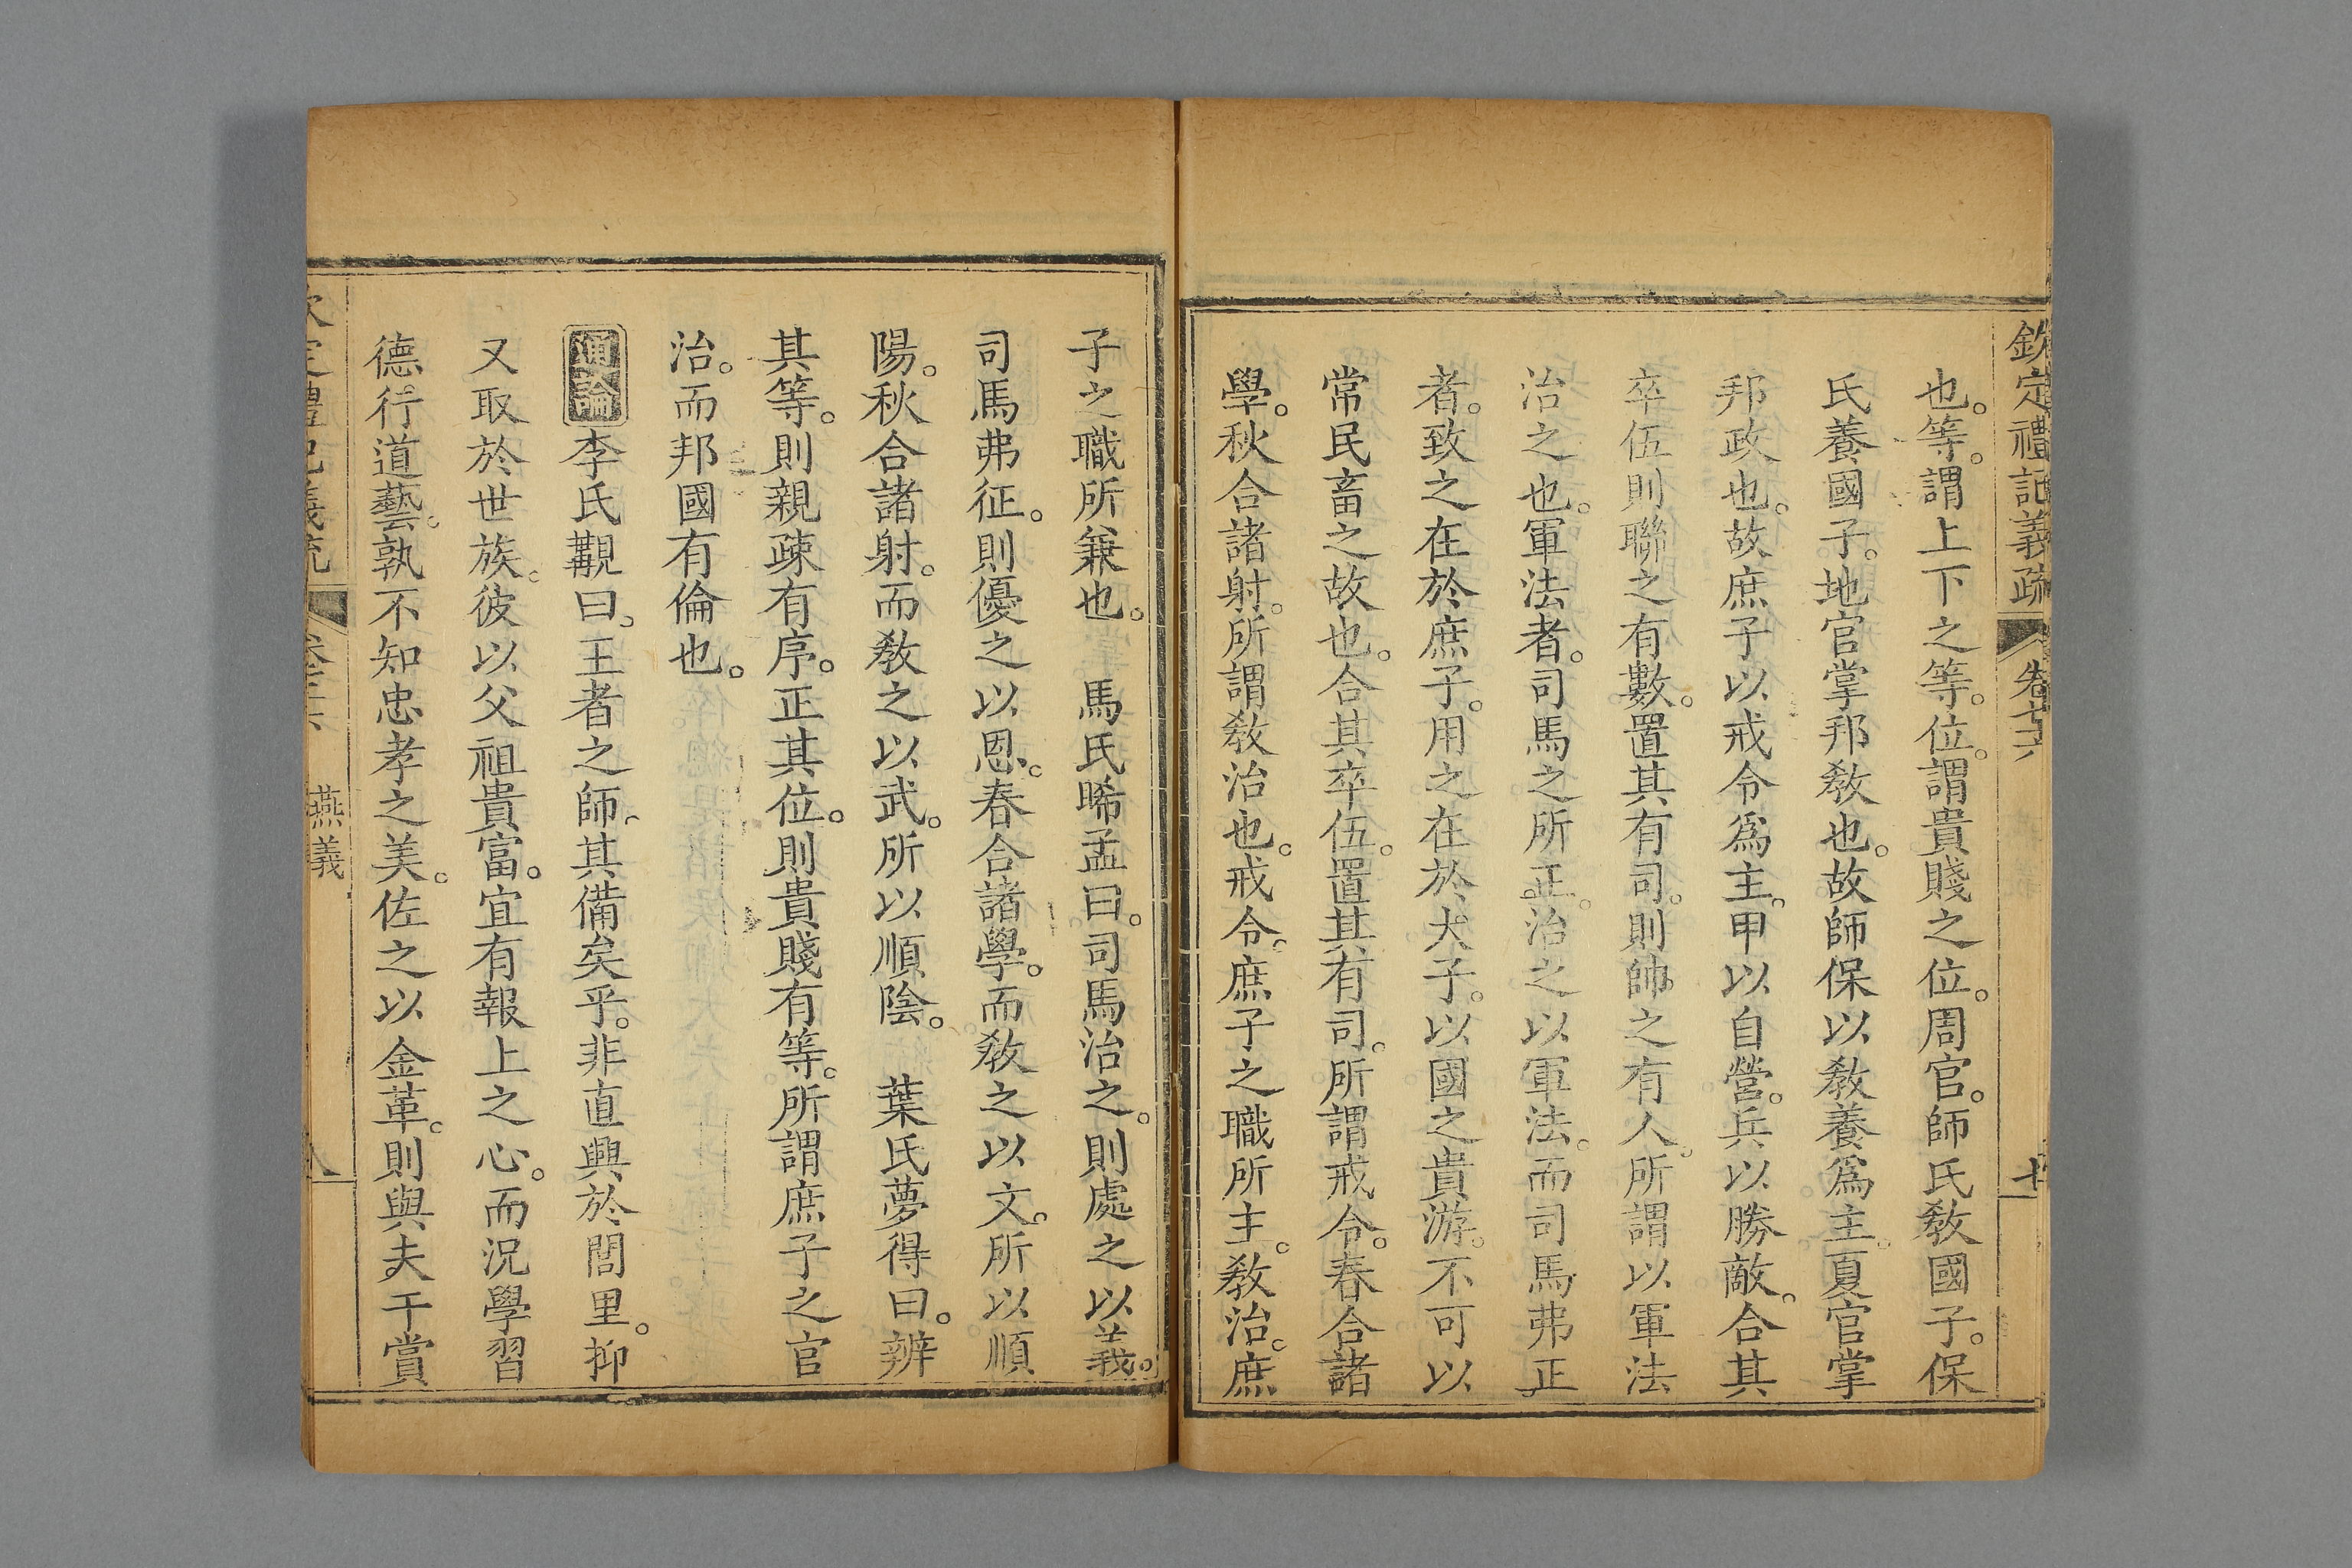 欽定禮記義疏 卷七十六
也。等。謂上下之等。位。謂貴賤之位。周官。師氏敎國子。保
氏養國子。地官掌邦敎也。故師保以敎養爲主。夏官掌
邦政也。故庶子以戒令爲主。甲以自營。兵以勝敵。合其
卒伍則聯之有數。置其有司。則帥之有人。所謂以軍法
治之也。軍法者。司馬之所正。治之以軍法。而司馬弗正
者。致之在於庶子。用之在於大子。以國之貴游。不可以
常民畜之故也。合其卒伍。置其有司。所謂戒令。春合諸
學。秋合諸射。所謂敎治也。戒令。庶子之職所主。敎治。庶
子之職所兼也。 馬氏晞孟曰。司馬治之。則處之以義。
司馬弗征。則優之以恩。春合諸學。而敎之以文。所以順
陽。秋合諸射。而敎之以武。所以順陰。 葉氏夢得曰。辨
其等。則親疎有序。正其位。則貴賤有等。所謂庶子之官
治。而邦國有倫也。
通論 李氏覯曰。王者之師。其備矣乎。非直興於閭里。抑
又取於世族。彼以父祖貴富。宜有報上之心。而況學習
德行道藝。孰不知忠孝之美。佐之以金革。則與夫干賞
燕義